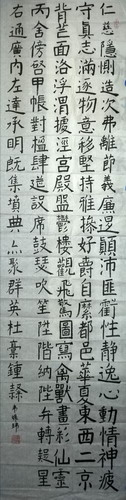 仁慈隱惻造次弗離節義廉退顛沛匪虧性靜逸心動情神疲
守真志滿逐物意移堅持雅操好爵自縻都邑華夏東西二京
背芒面洛浮渭據涇宮殿盤鬱樓觀飛驚圖寫禽獸畫彩仙靈
丙舍傍啓甲帳對楹肆筵設席鼓瑟吹笙陞階納陛弁轉疑星
右通廣內左達承明既集墳典亦聚群英杜稾鍾隸